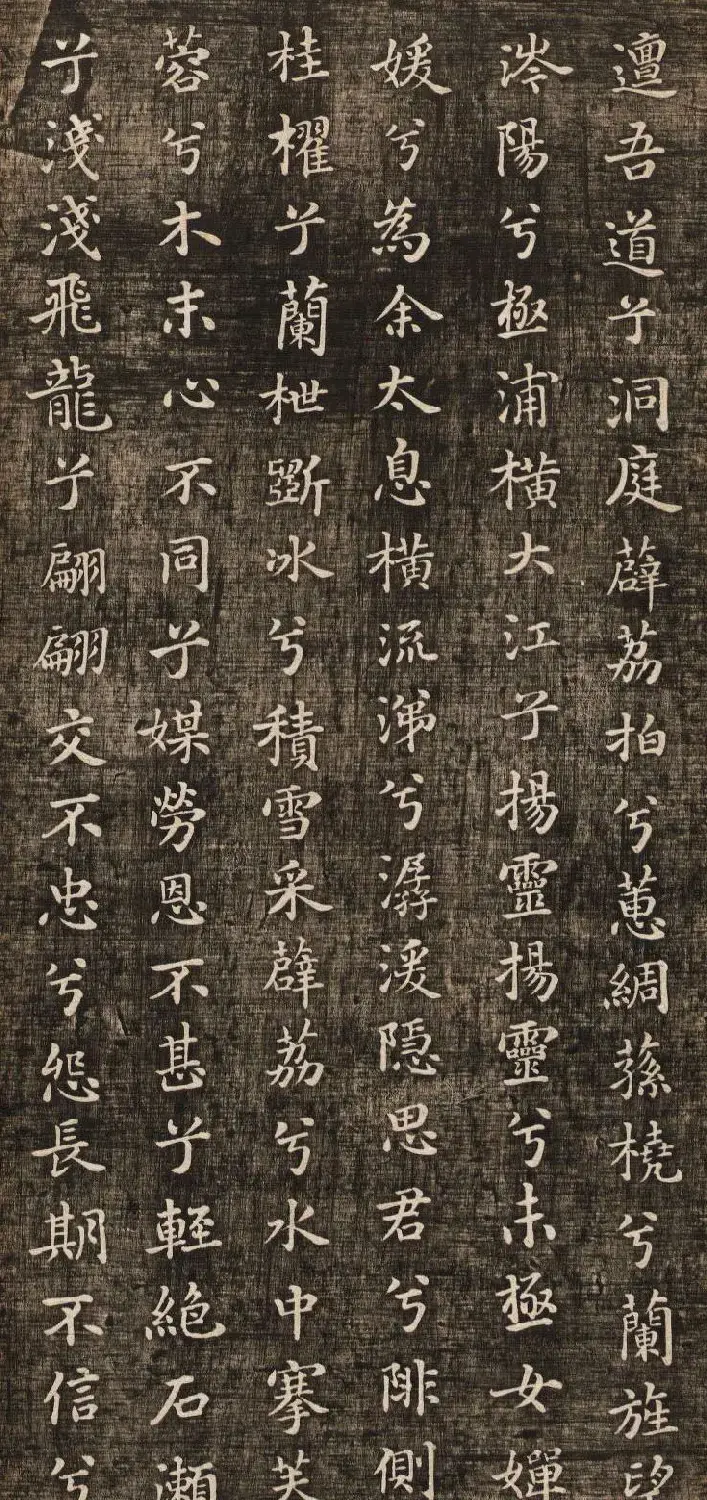 邅吾道兮洞庭薜荔拍兮蕙綢蓀橈兮蘭旌望
涔陽兮極浦橫大江兮揚靈揚靈兮未極女嬋
媛兮為余太息橫流涕兮潺湲隱思君兮陫側
桂櫂兮蘭枻斲冰兮積雪采薜荔兮水中搴芙
蓉兮木末心不同兮媒勞恩不甚兮輕絕石瀨
兮淺淺飛龍兮翩翩交不忠兮怨長期不信兮